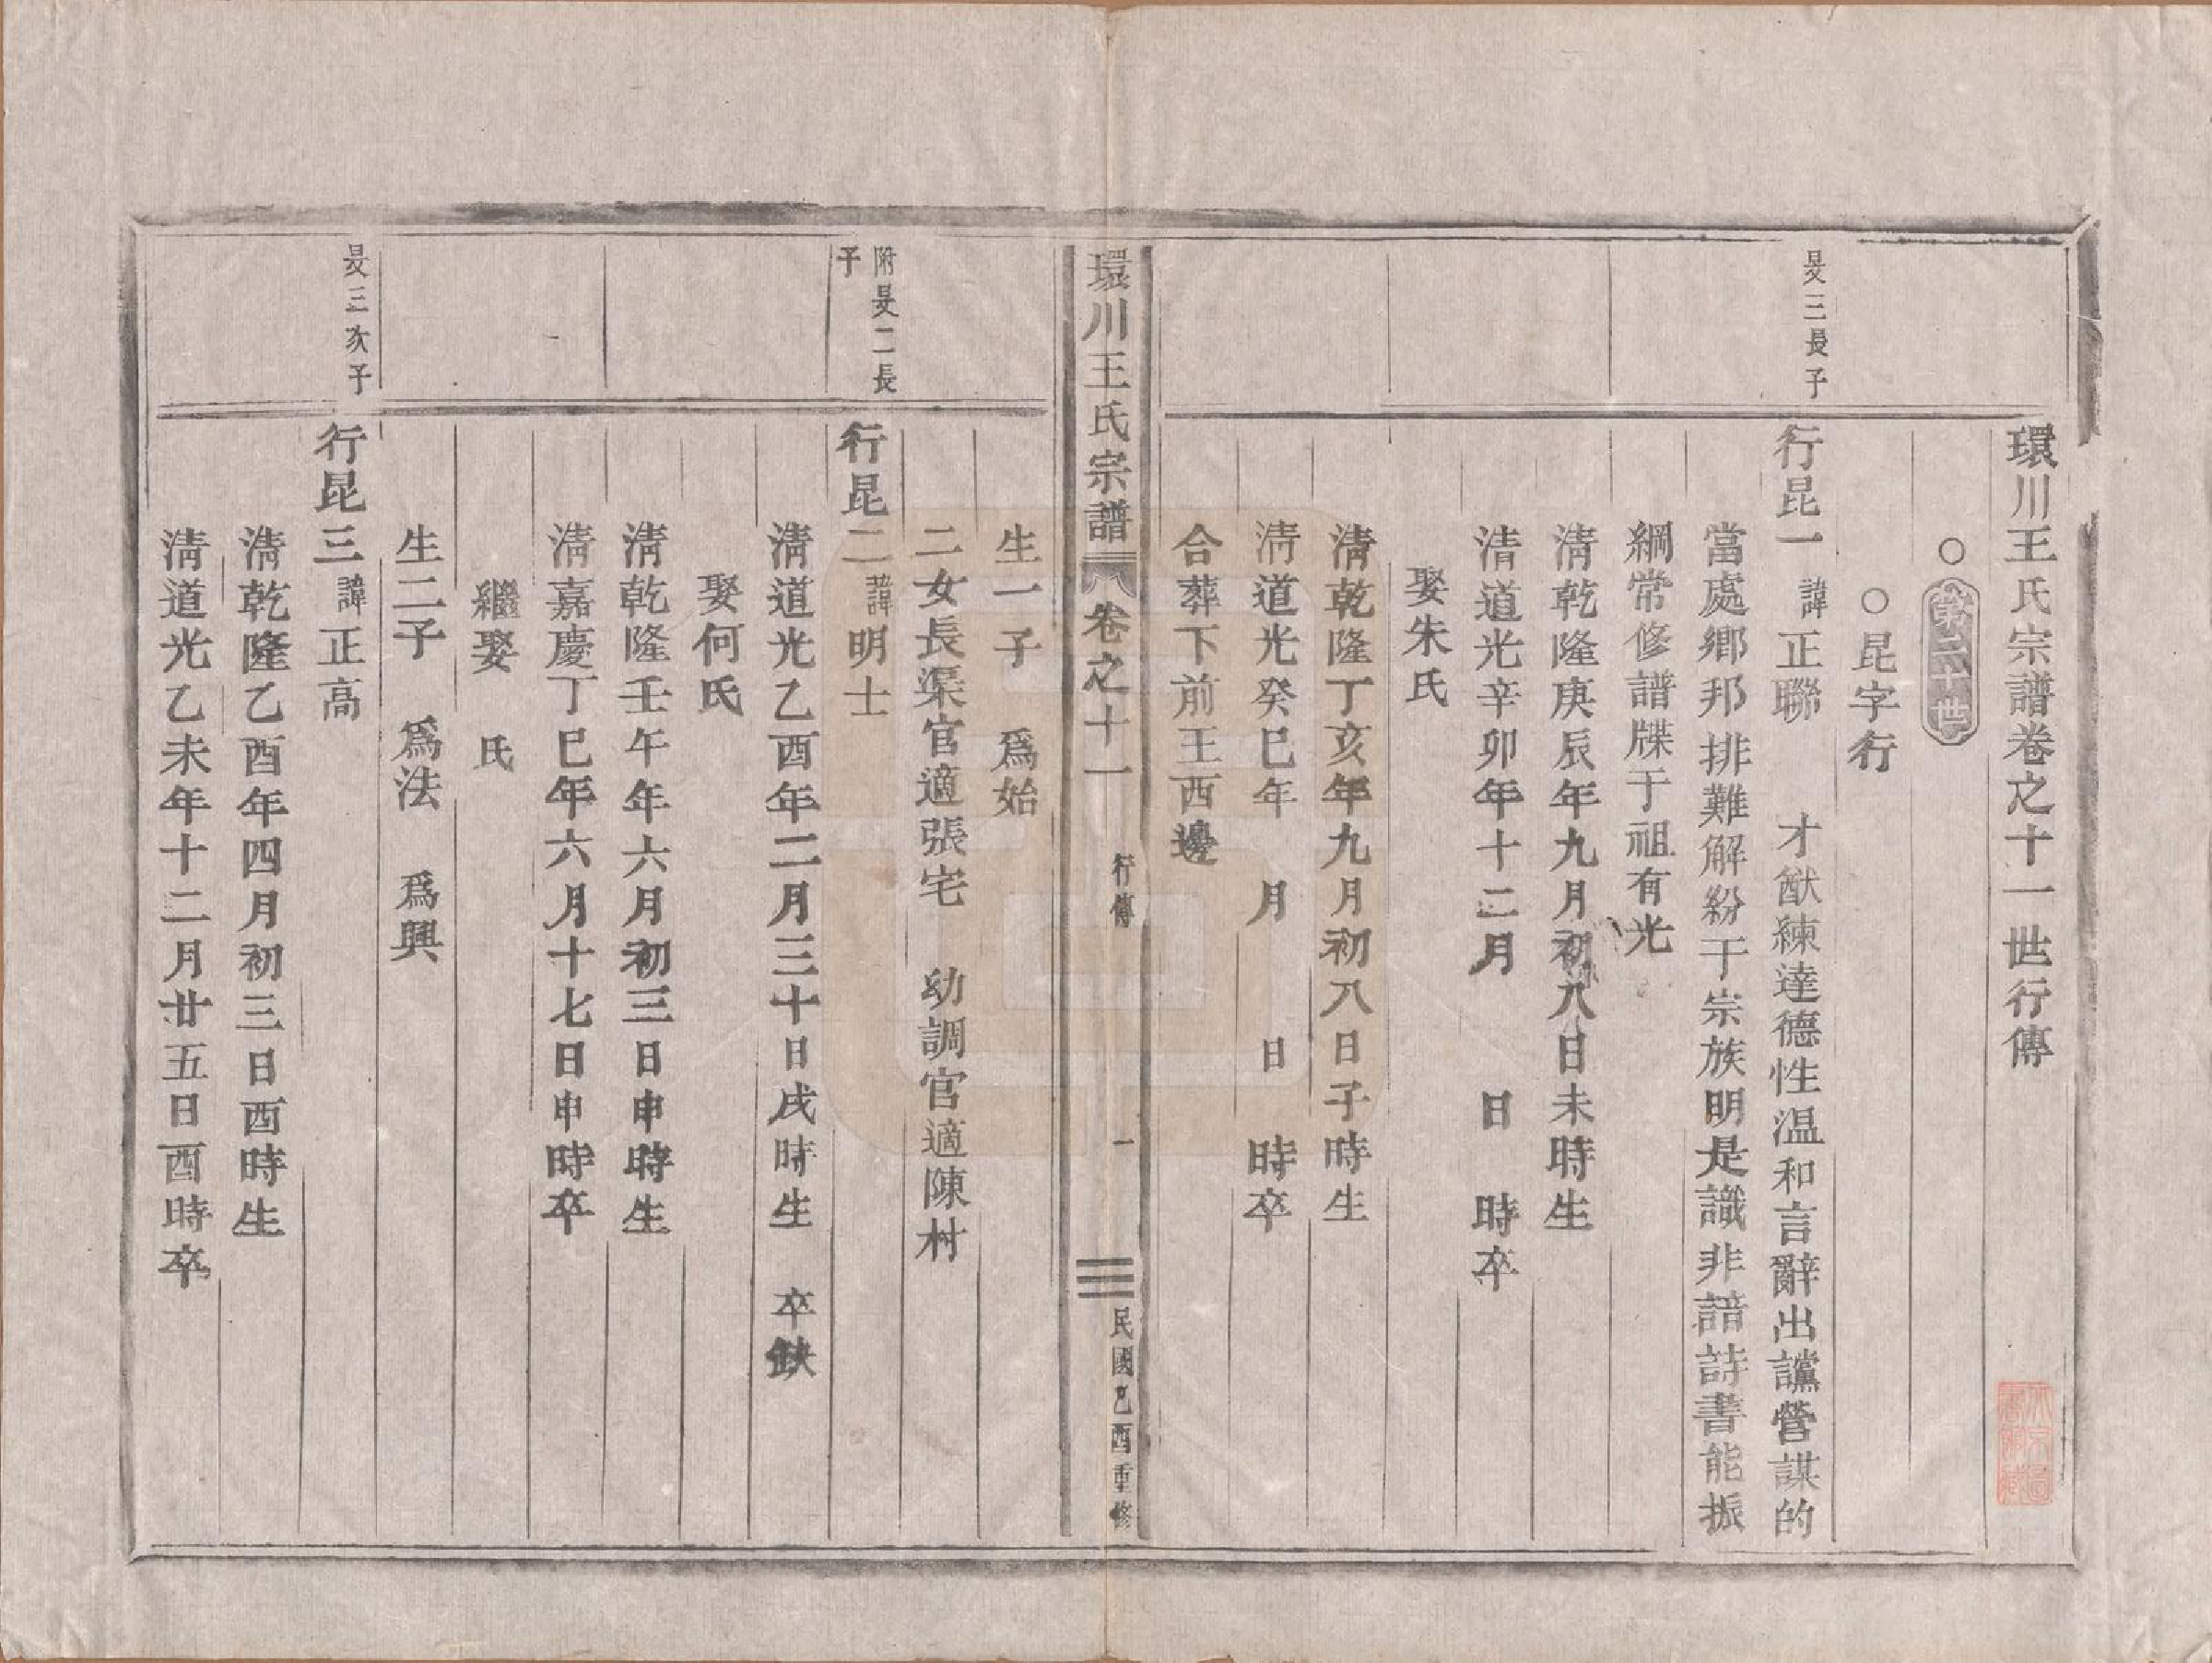 環川王氏宗譜卷之十一世行傳
○第二十世
○昆字行
旻三長子
行昆一 諱正聯 才猷練達德性温和言辭出讜營謀的
當處鄉邦排難解紛于宗族明是識非諳詩書能振
綱常修譜牒于祖有光
清乾隆庚辰年九月初八日未時生
清道光辛卯年十二月 日 時卒
娶朱氏
清乾隆丁亥年九月初八日子時生
清道光癸巳年 月 日 時卒
合葬下前王西邊
環川王氏宗譜 卷之十一 行傳 一 民國乙酉重修
生一子 爲始
二女長渠官適張宅 幼調官適陳村
附旻二長
子
行昆二 諱明士
清道光乙酉年二月三十日戌時生 卒缺
娶何氏
清乾隆壬午年六月初三日申時生
清嘉慶丁巳年六月十七日申時卒
繼娶 氏
生二子 爲法 爲興
旻三次子
行昆三 諱正高
清乾隆乙酉年四月初三日酉時生
清道光乙未年十二月廿五日酉時卒